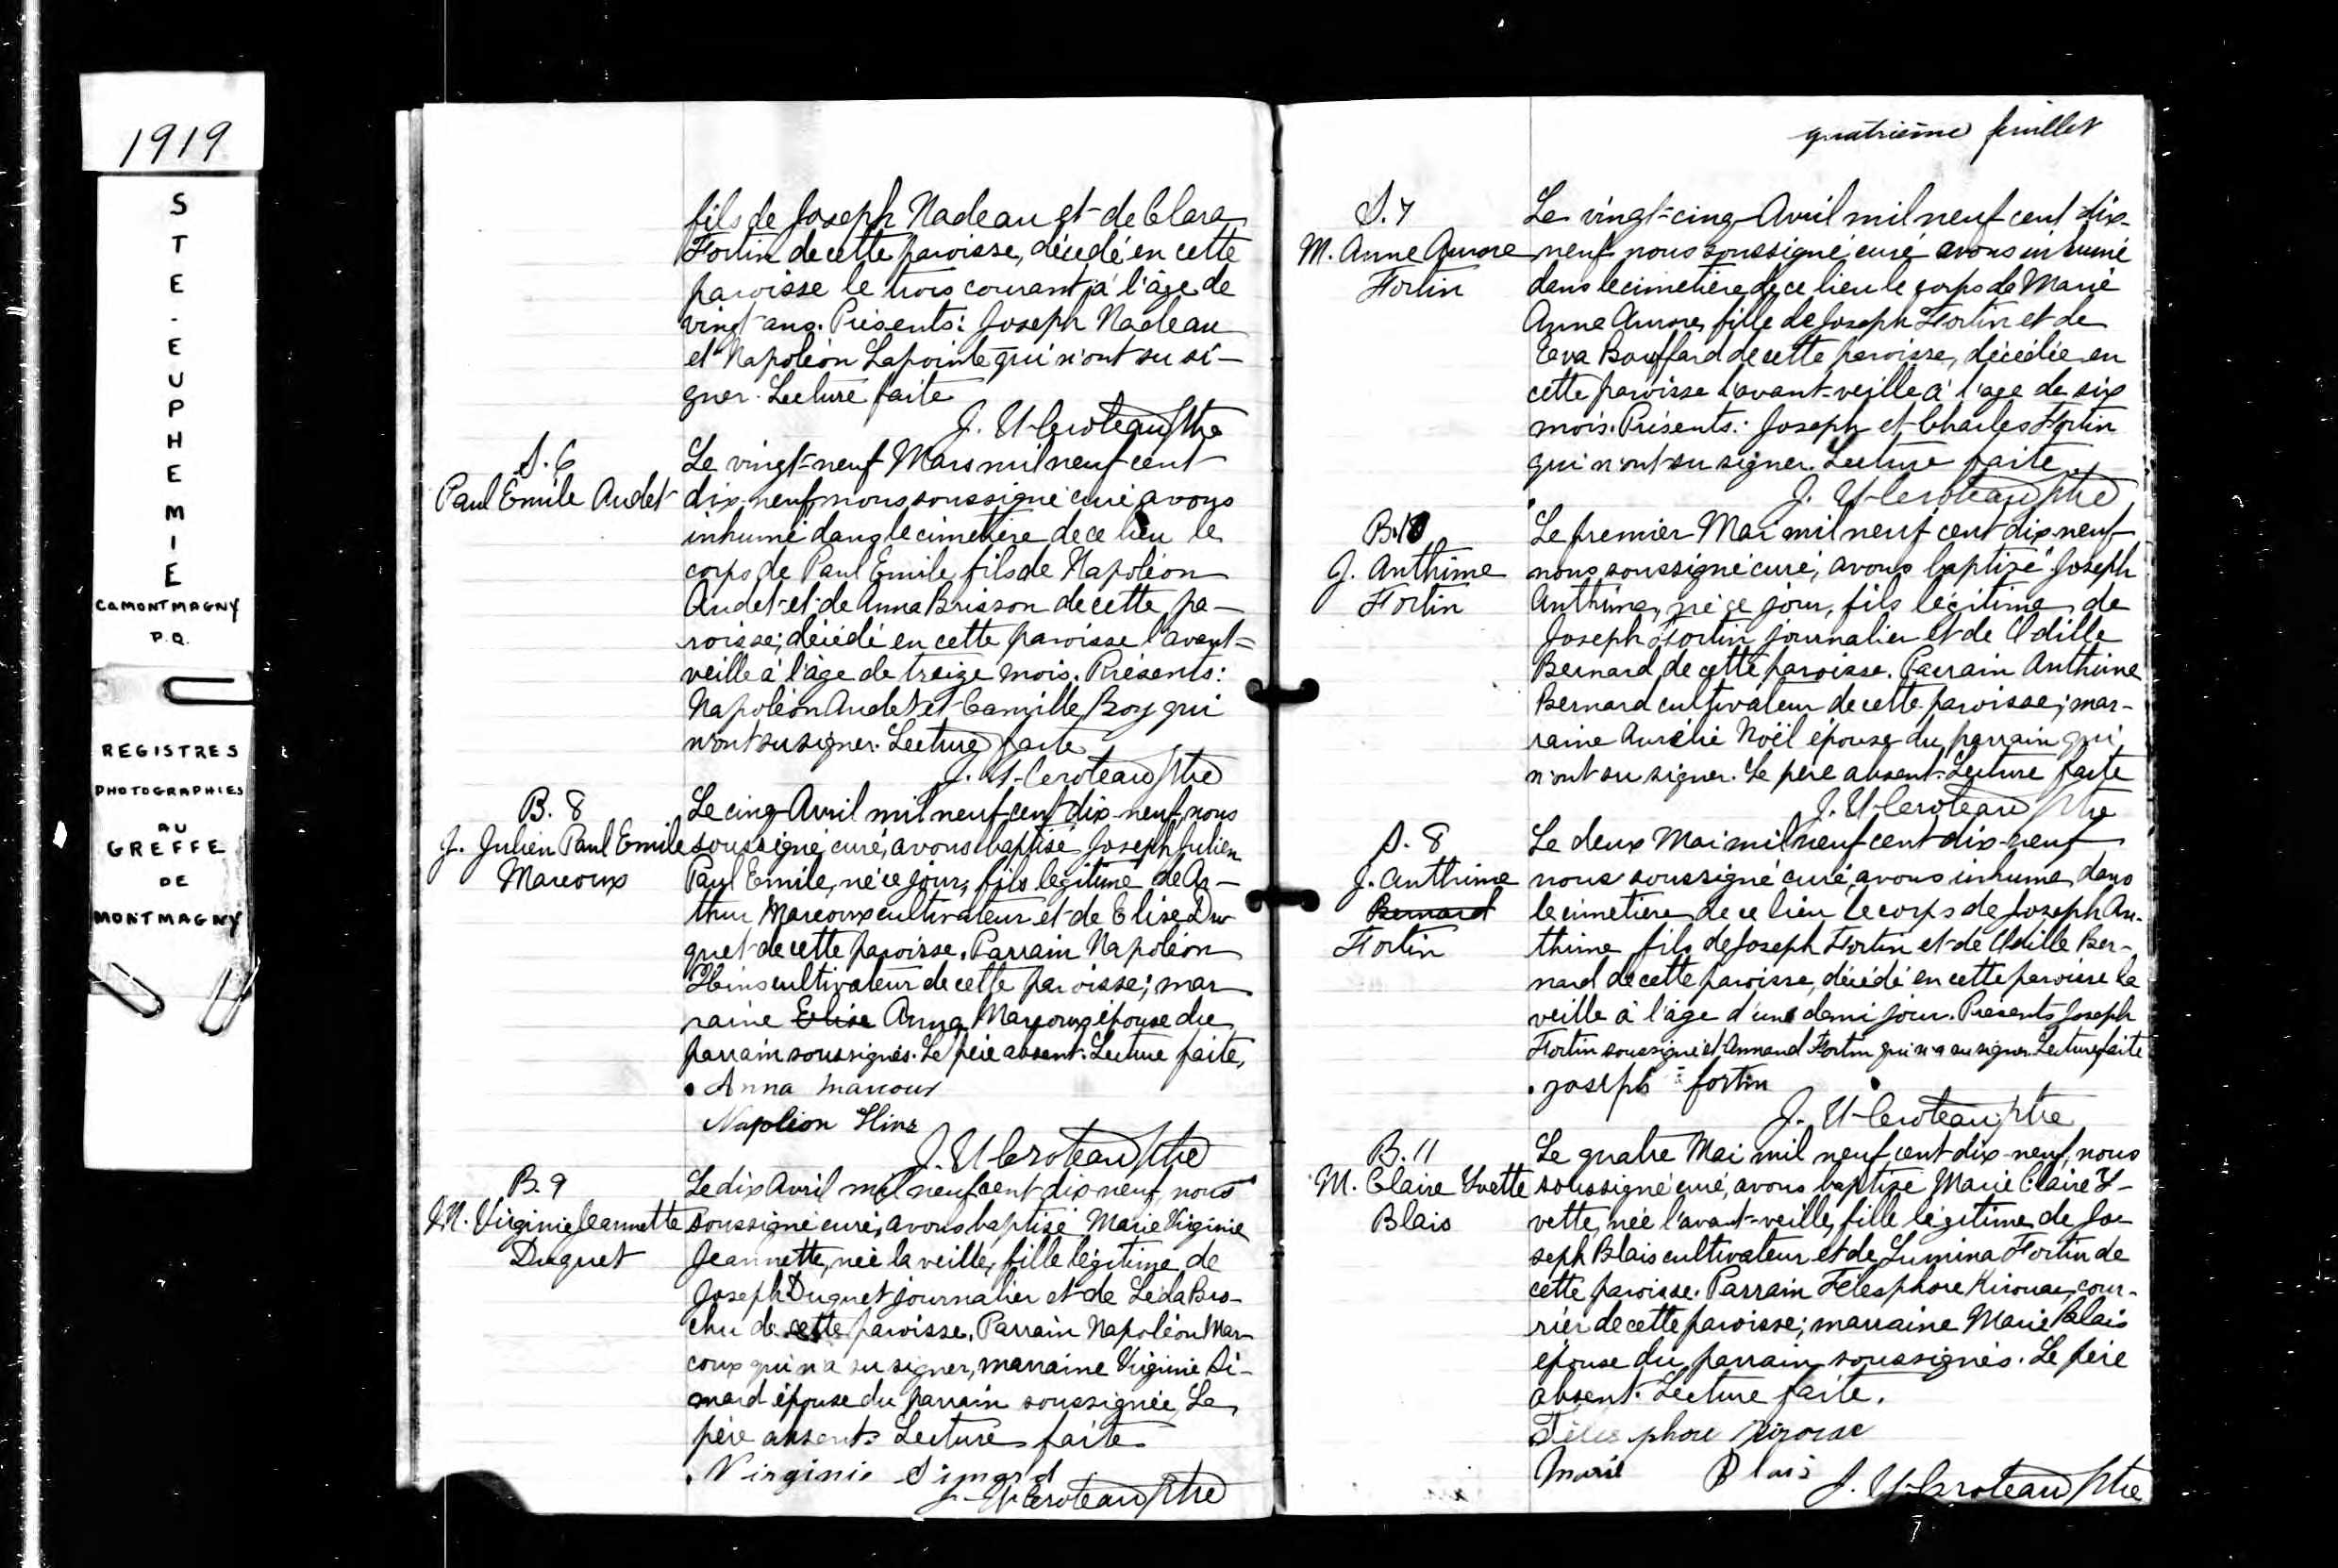 1919
STE-EUPHEMIE
CO MONTMAGNY
P.Q.
REGISTRES
PHOTOGRAPHIES
AU
GREFFE
DE
MONTMAGNY
fils de Joseph Nadeau et de Clara
Fortin de cette paroisse, décédé en cette
paroisse le trois courant à l'âge de
vingt ans. Présents: Joseph Nadeau
et Napoléon Lapointe qui n'ont su si-
gner. Lecture faite
J. U. Croteau Ptre
S. 6
Paul Emile Audet
Le vingt-neuf Mars mil neuf cent
dix-neuf, nous soussigné curé avons
inhumé dans le cimetière de ce lieu le
corps de Paul Emile, fils de Napoléon
Audet et de Anna Brisson de cette pa-
roisse; décédé en cette paroisse l'avant=
veille à l'âge de treize mois. Présents:
Napoléon Audet et Camille Roy qui
n'ont su signer. Lecture faite
J. U. Croteau Ptre
B. 8
J. Julien Paul Emile
Marcoux
Le cinq Avril mil neuf cent dix-neuf, nous
soussigné, curé, avons baptisé Joseph Julien
Paul Emile, né ce jour, fils légitime de Ar-
thur Marcoux cultivateur et de Elise Du-
quet de cette paroisse. Parrain Napoléon
Hins cultivateur de cette paroisse; mar-
raine Elise Anna Marcoux épouse du
parrain soussignés. Le père absent. Lecture faite,
Anna marcoux
Napoléon Hins
J. U. Croteau Ptre
B. 9
M. Virginie Jeannette
Duquet
Le dix Avril mil neuf cent dix-neuf, nous
soussigné curé, avons baptisé Marie Virginie
Jeannette, née la veille, fille légitime de
Joseph Duquet journalier et de Léda Bro-
chu de cette paroisse. Parrain Napoléon Mar-
coux qui n'a su signer, marraine Virginie Si-
mard épouse du parrain soussignée, Le
père absent. Lecture faite
Virginie Simard
J. U. Croteau Ptre
quatrième feuillet
S. 7
M. Anne Aurore
Fortin
Le vingt-cinq Avril mil neuf cent dix-
neuf nous soussigné, curé avons inhumé
dans le cimetière de ce lieu le corps de Marie
Anne Aurore, fille de Joseph Fortin et de
Eeva Bouffard de cette paroisse, décédée en
cette paroisse l'avant-veille à l'age de six
mois. Présents: Joseph et Charles Fortin
qui n'ont su signer. Lecture faite.
J. U. Croteau Ptre
B. 10
J. Anthime
Fortin
Le premier Mai mil neuf cent dix-neuf
nous soussigné curé, avons baptisé Joseph
Anthime, né ce jour, fils légitime de
Joseph Fortin journalier et de Odille
Bernard de cette paroisse. Parrain Anthime
Bernard cultivateur de cette paroisse; mar-
raine Aurélie Noël épouse du parrain qui
n'ont su signer. Le père absent. Lecture faite
J. U. Croteau Ptre
S. 8
J. Anthime
Bernard
Fortin
Le deux Mai mil neuf cent dix-neuf
nous soussigné curé, avons inhumé, dans
le cimetière de ce lieu le corps de Joseph An-
thime fils de Joseph Fortin et de Odille Ber-
nard de cette paroisse, décédé en cette paroisse la
veille à l'âge d'un demi jour. Présents Joseph
Fortin soussigné et Armand Fortin qui n'a su signer. Lecture faite
joseph fortin
J. U. Croteau Ptre
B. 11
M. Claire Yvette
Blais
Le quatre Mai mil neuf cent dix-neuf, nous
soussigné curé, avons baptisé Marie Claire Y-
vette, née l'avant-veille, fille légitime de Jo-
seph Blais cultivateur et de Lumina Fortin de
cette paroisse. Parrain Télesphore Kirouac, cour-
rier de cette paroisse; marraine Marie Blais
épouse du parrain soussignés. Le père
absent. Lecture faite.
Télesphore Kirouac
Marie Blais
J. U. Croteau Ptre